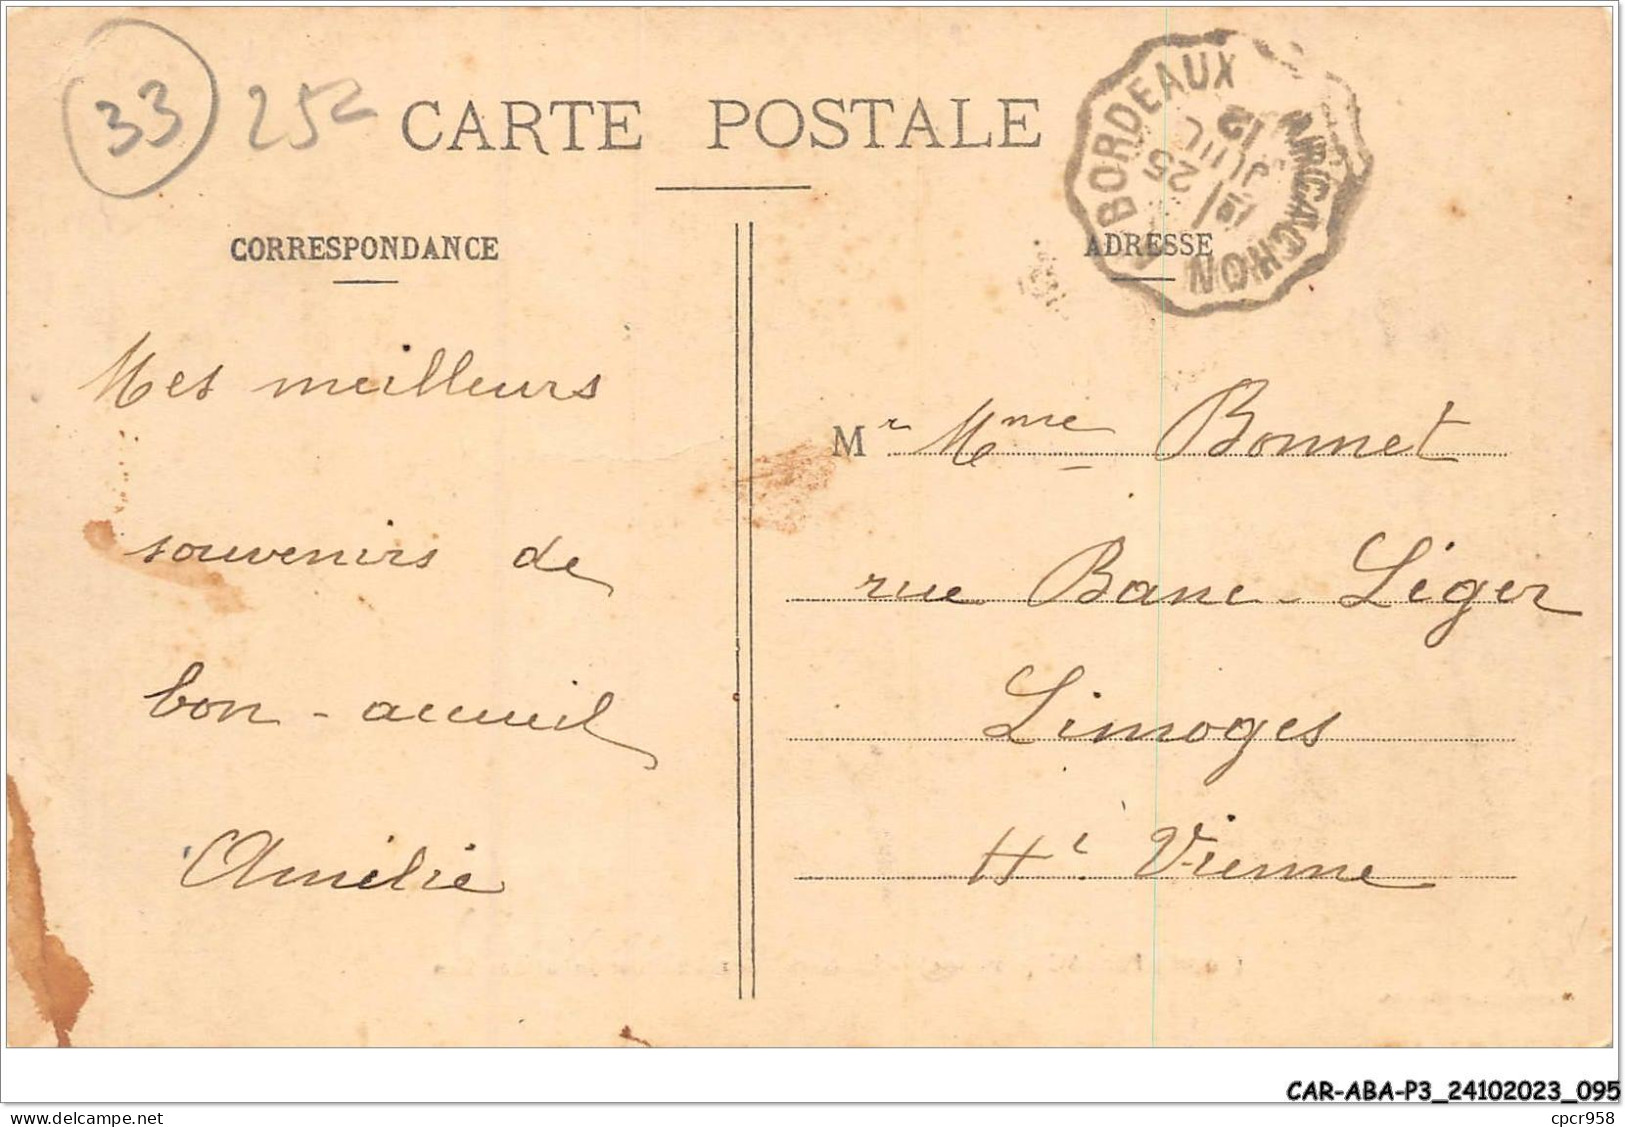 33 252
CARTE POSTALE
CORRESPONDANCE
ADRESSE
BORDEAUX
ARCACHON
12
25
JUIL
Mes meilleurs
souvenirs de
bon-accueil
Amélie
Mr Mme Bonnet
rue Banc-Léger
Limoges
Hte Vienne
CAR-ABA-P3_24102023_095
www.delcampe.net
cpcr958